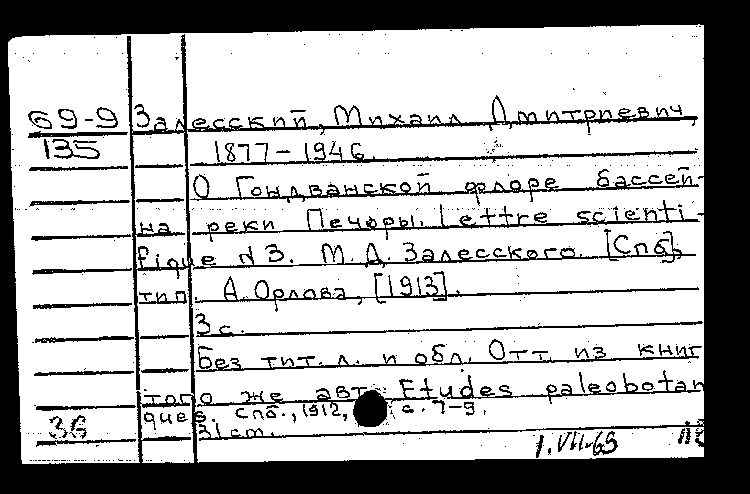 69-9 Залесский, Михаил Дмитриевич,
135 1877-1946.
О Гондванской флоре бассей-
на реки Печоры. Lettre scienti-
fique N 3. М. Д. Залесского. [Спб],
тип. А. Орлова, [1913].
3 с.
Без тит. л. и обл. Отт. из книг
того же авт. Etudes paleobotan
ques. Спб., 1912, с. 7-9.
36 31 cm.
1.VII-69